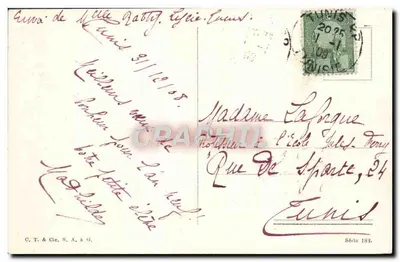 Envoi de Mlle Rattiq, Lycée, Tunis.
Tunis
31/12/08
Meilleurs vœux de
bonheur pour l'an neuf!
Votre petite élève
Mathilde
TUNIS
20 25
TUNISIE
Madame Laforgue
Professeur à l'école Jules-Ferry
"Rue de Sparte, 24
Tunis
C. T. & Cie, N. A., & O.
Série 183.
CPAPHIL